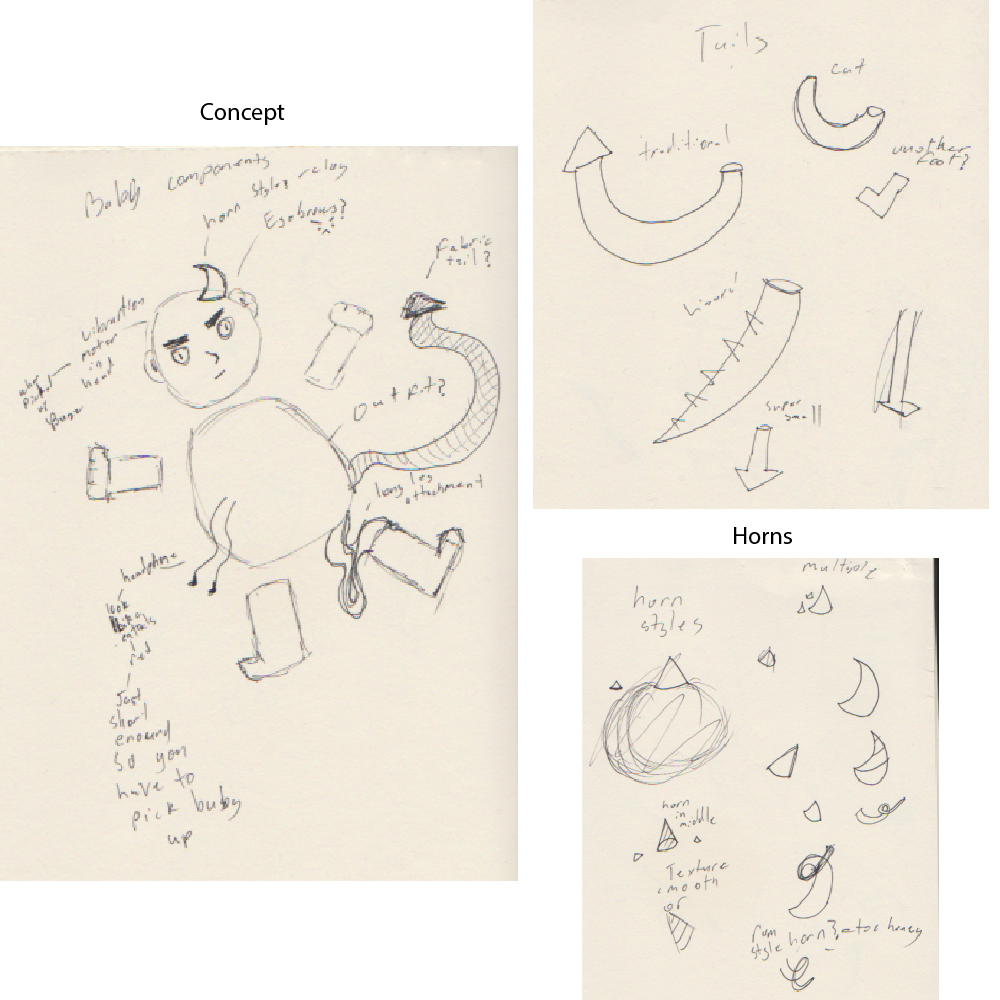 Concept
Baby components
horn styles relay
Eyebrows?
Fabric
tail?
vibration
motor
in
head
when
Outfit?
long leg
attachment
headphone
look
like
red
Just
short
enound
so you
have to
pick baby
up
Tails
cat
traditional
another
foot?
lizard
super
small
Horns
multiple
horn
styles
horn
in
middle
Texture
smooth
or
ram
style horn? too heavy